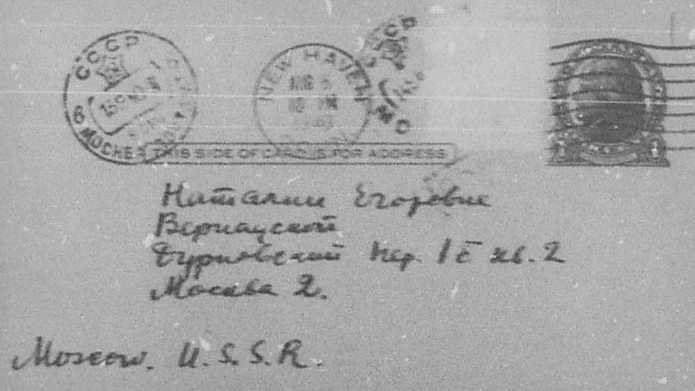 СССР
NEW HAVEN
МОСКВА
THIS SIDE OF CARD IS FOR ADDRESS
Наталии Егоровне
Вернадской
Дурновский пер. 1Б кв. 2
Москва 2.
Moscow. U.S.S.R.